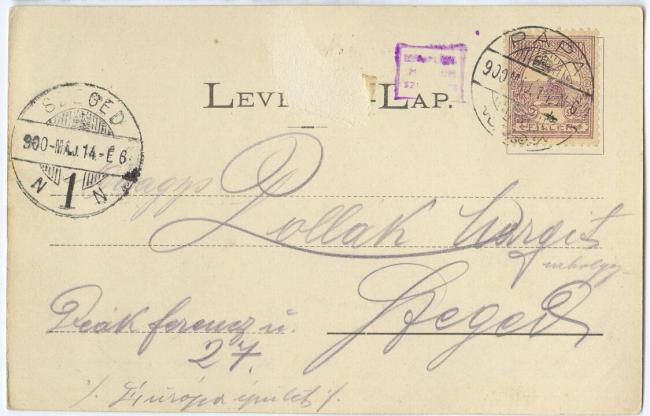 PÁPA
FILLÉR
LEVE -LAP.
SZEGED
900-MÁJ.14.-E 6
N 1 N
Nagys
Pollák Margit
úrhölgy
Deák Ferencz u.
Szeged
27.
·/. Európa épület ·/.